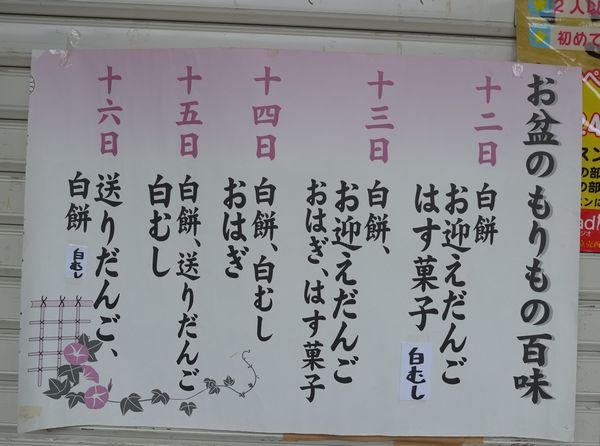 お盆のもりもの百味
十二日
白餅
お迎えだんご
はす菓子
白むし
十三日
白餅、
お迎えだんご
おはぎ、はす菓子
十四日
白餅、白むし
おはぎ
十五日
白餅、送りだんご
白むし
十六日
送りだんご、
白餅
白むし
2人以
初めて